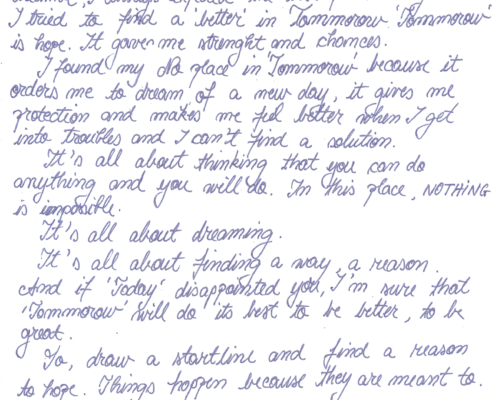 I tried to find a better in Tommorow. 'Tommorow'
is hope. It gaver me strenght and chances.
I found my No place in 'Tommorow' because it
orders me to dream of a new day, it gives me
protection and makes me feel better when I get
into troubles and I can't find a solution.
It's all about thinking that you can do
anything and you will do. In this place, NOTHING
is impossible.
It's all about dreaming.
It's all about finding a way, a reason.
And if 'Today' disappointed you, I'm sure that
'Tommorow' will do its best to be better, to be
great.
To, draw a startline and find a reason
to hope. Things happen because they are meant to.